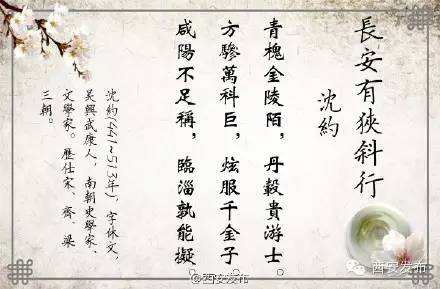 長安有狹斜行
沈約
青槐金陵陌，丹轂貴游士。
方驂萬科巨，炫服千金子。
咸陽不足稱，臨淄孰能擬。
沈約(441~513年)，字休文，
吴興武康人，南朝史學家、
文學家。歷仕宋、齊、梁
三朝。
@西安发布
西安发布